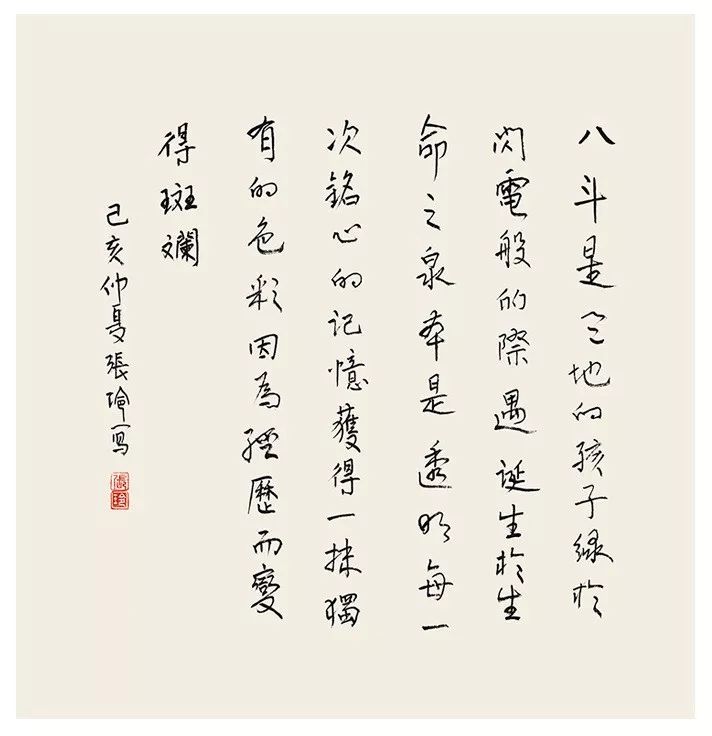 八斗是天地的孩子緣於
閃電般的際遇誕生於生
命之泉本是透明每一
次銘心的記憶獲得一抹獨
有的色彩因為經歷而變
得斑斕
己亥仲夏張玲寫
張玲